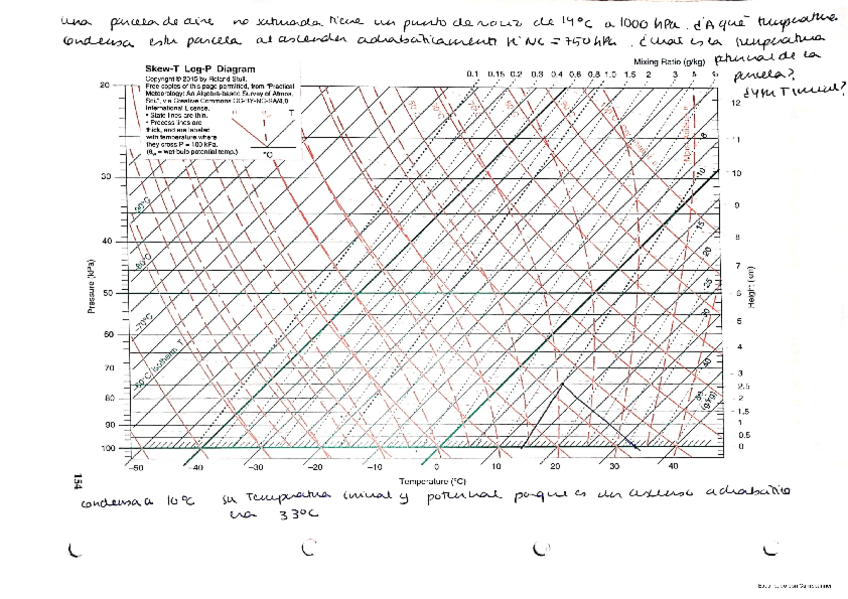 una parcela de aire no saturada tiene un punto de rocío de 14°C a 1000 hPa. ¿A qué temperatura
condensa esta parcela al ascender adiabáticamente si NC = 750 hPa. ¿Cuál es la temperatura
potencial de la
parcela?
¿y su T inicial?
Skew-T Log-P Diagram
Copyright © 2015 by Roland Stull.
Free copies of this page permitted, from "Practical
Meteorology: An Algebra-based Survey of Atmos.
Sci.", via Creative Commons CC-BY-NC-SA/4.0
International License.
• State lines are thin.
• Process lines are
thick, and are labeled
with temperature where
they cross P = 100 kPa.
(θw = wet-bulb potential temp.)
T
°C
Mixing Ratio (g/kg)
0.1 0.15 0.2 0.3 0.4 0.6 0.8 1.0 1.5 2 3 5
Pressure (kPa)
20
30
40
50
60
70
80
90
100
Height (km)
12
11
10
9
8
7
6
5
4
3
2.5
2
1.5
1
0.5
0
8
10
15
20
25
30
40
(g/kg)
-90°C
-80°C
-70°C
-60°C Isotherm T
-50 -40 -30 -20 -10 0 10 20 30 40
Temperature (°C)
154
condensa a 10°C su temperatura inicial y potencial porque es un ascenso adiabático
era 33°C